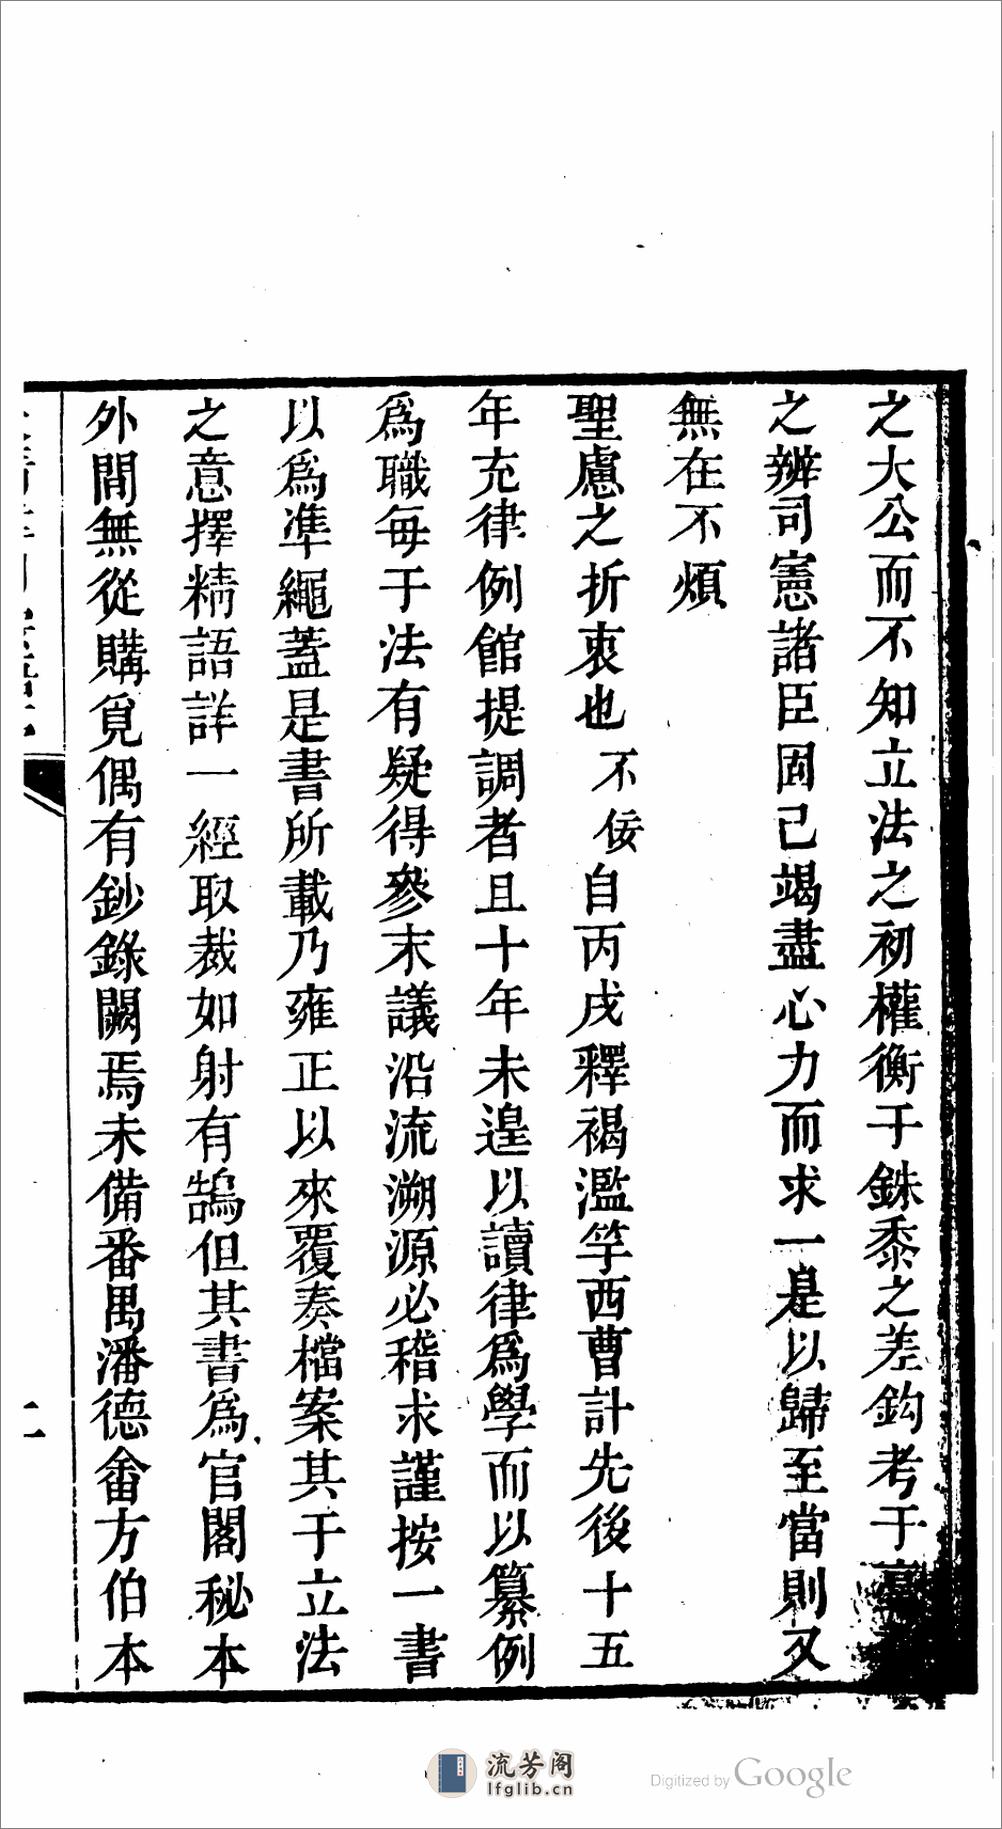 之大公而不知立法之初權衡于銖黍之差鈎考于
之辨司憲諸臣固已竭盡心力而求一是以歸至當則又
無在不煩
聖慮之折衷也不佞自丙戌釋褐濫竽西曹計先後十五
年充律例館提調者且十年未遑以讀律爲學而以纂例
爲職每于法有疑得參末議沿流溯源必稽求謹按一書
以爲準繩蓋是書所載乃雍正以來覆奏檔案其于立法
之意擇精語詳一經取裁如射有鵠但其書爲官閣秘本
外間無從購覓偶有鈔錄闕焉未備番禺潘德畬方伯本
二
流芳阁
lfglib.cn
Digitized by Google